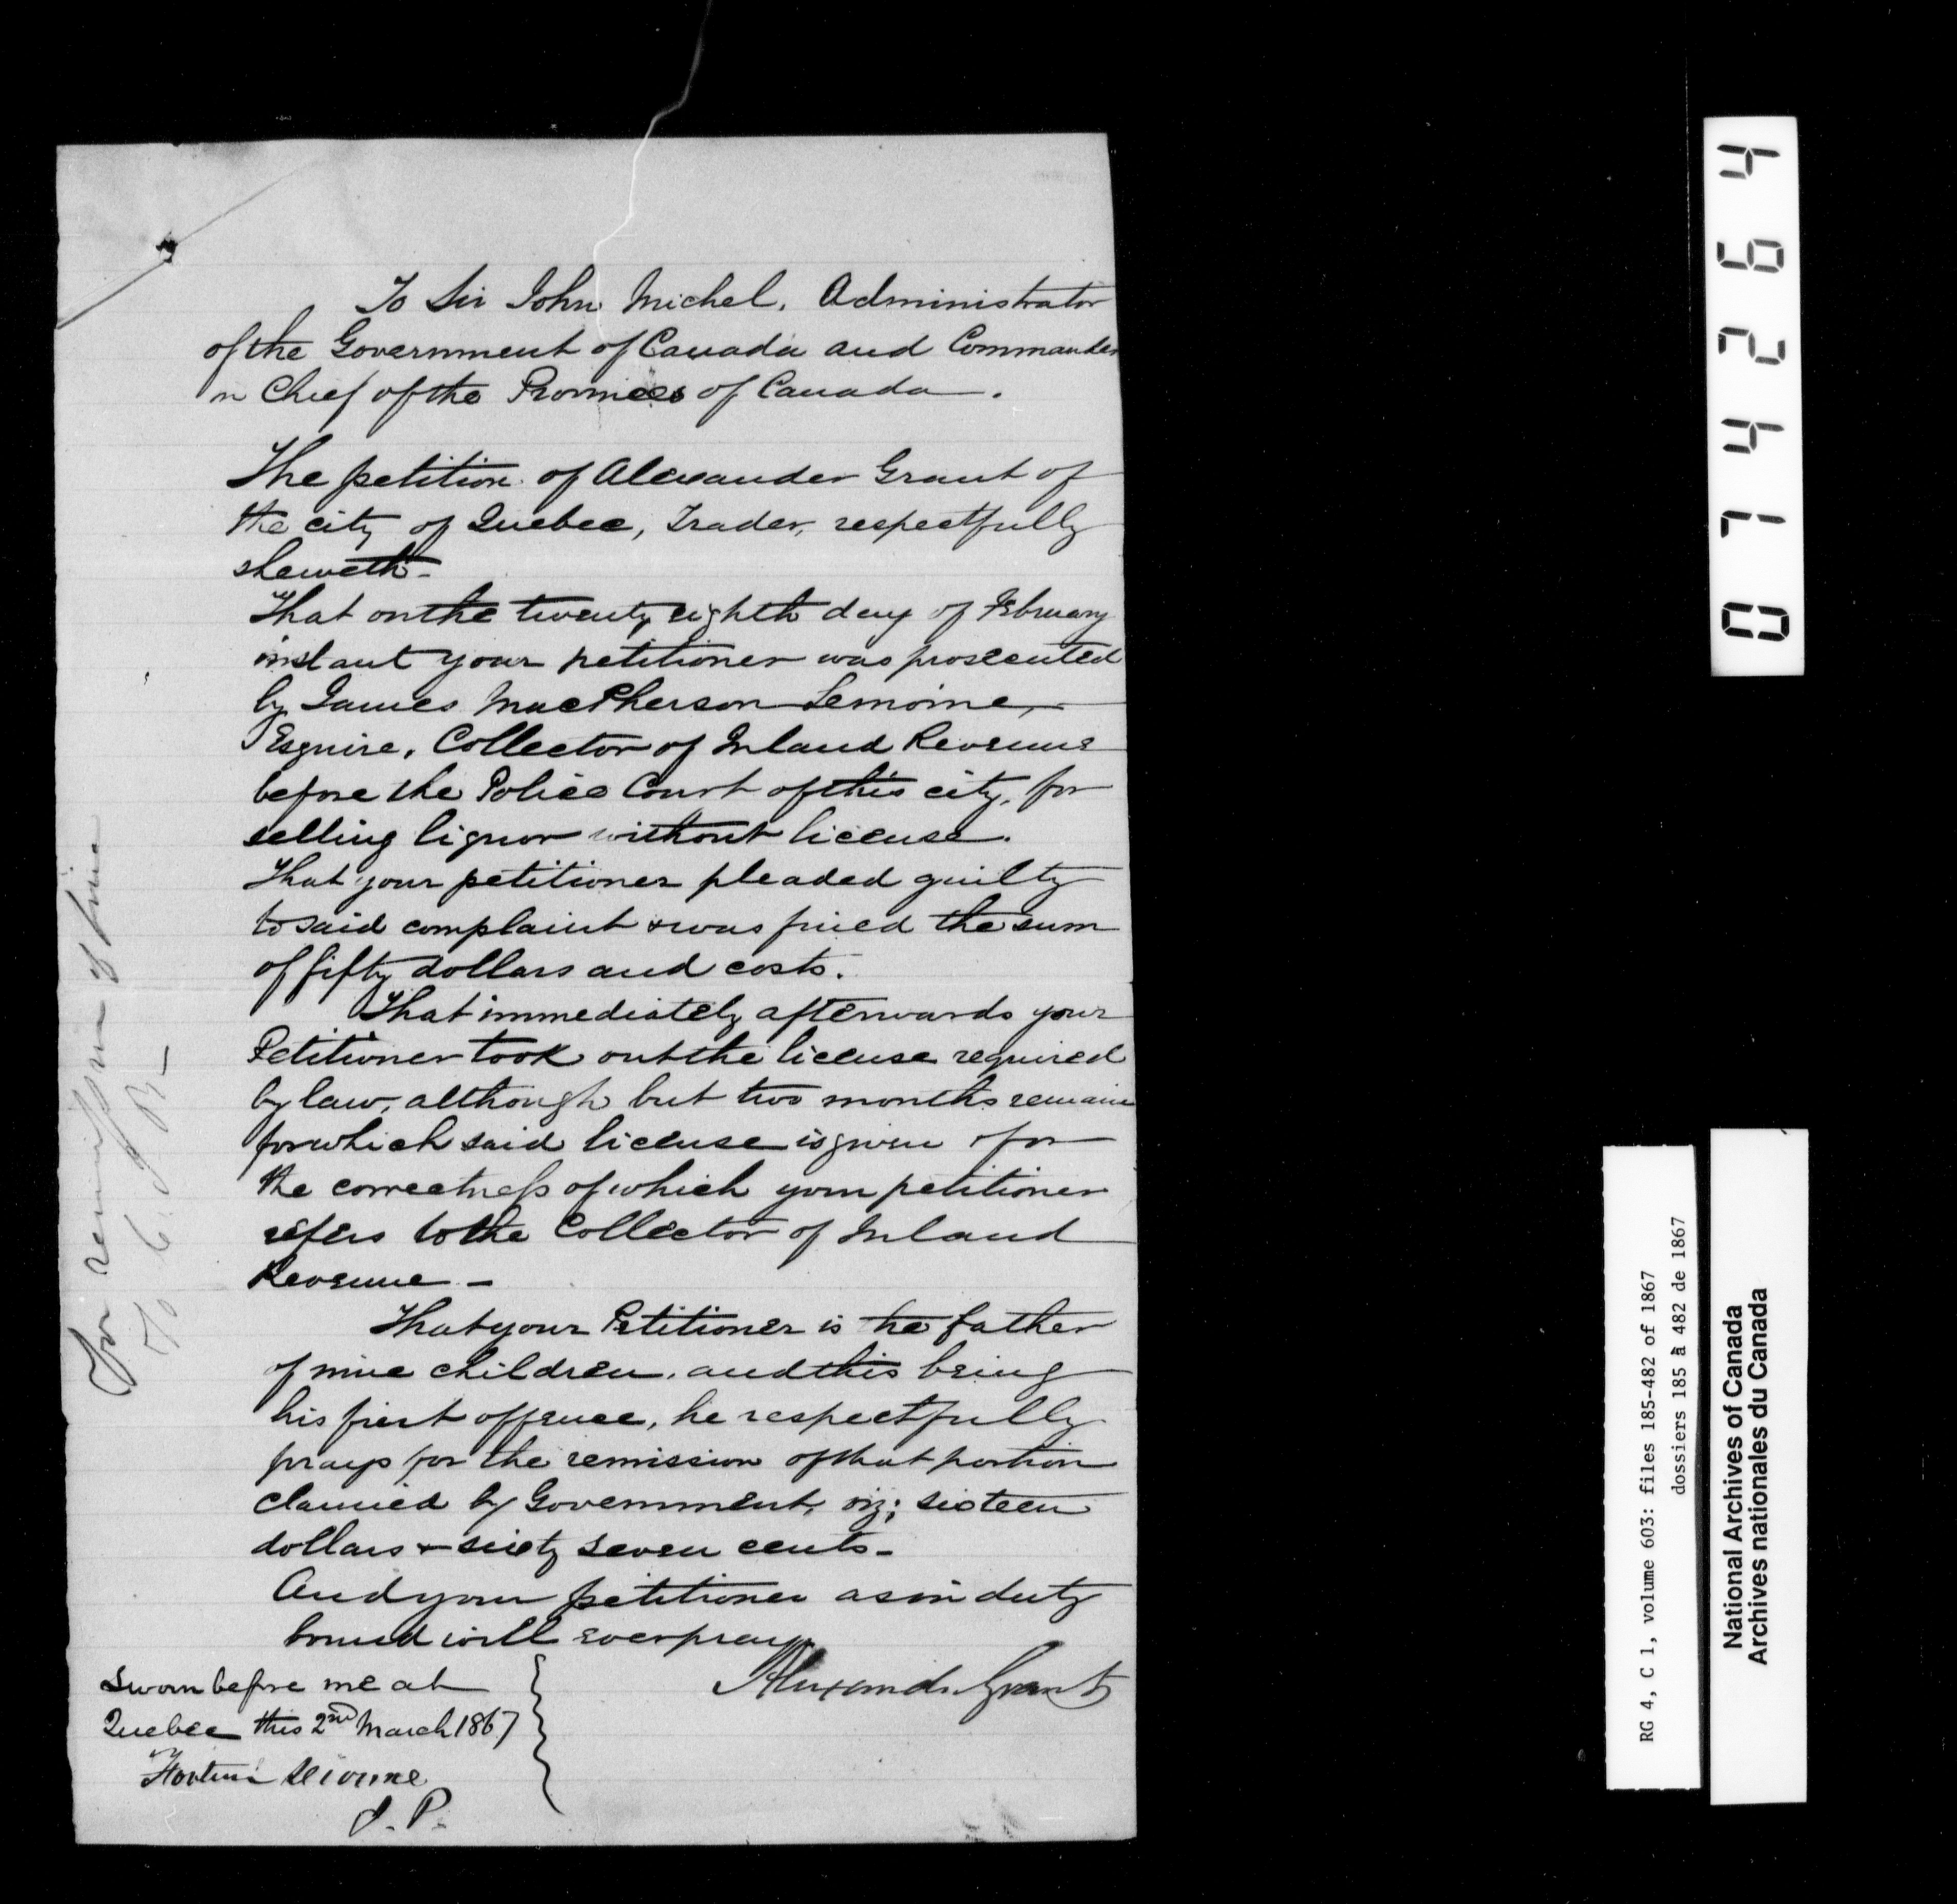 To Sir John Michel, Administrator
of the Government of Canada and Commander
in Chief of the Provinces of Canada.
The petition of Alexander Grant of
the city of Quebec, Trader, respectfully
sheweth -
That on the twenty eighth day of February
instant your petitioner was prosecuted
by James MacPherson Lemoine,
Esquire, Collector of Inland Revenue
before the Police Court of this city, for
selling liquor without license.
That your petitioner pleaded guilty
to said complaint & was fined the sum
of fifty dollars and costs.
That immediately afterwards your
Petitioner took out the license required
by law, although but two months remain
for which said license is given & for
the correctness of which your petitioner
refers to the Collector of Inland
Revenue -
That your Petitioner is the father
of nine children, and this being
his first offence, he respectfully
prays for the remission of that portion
claimed by Government, viz; sixteen
dollars & sixty seven cents -
And your petitioner as in duty
bound will ever pray
Alexander Grant
Sworn before me at
Quebec this 2nd March 1867
J. P.
For remission of fine
074264
RG 4, C 1, volume 603: files 185-482 of 1867
dossiers 185 à 482 de 1867
National Archives of Canada
Archives nationales du Canada